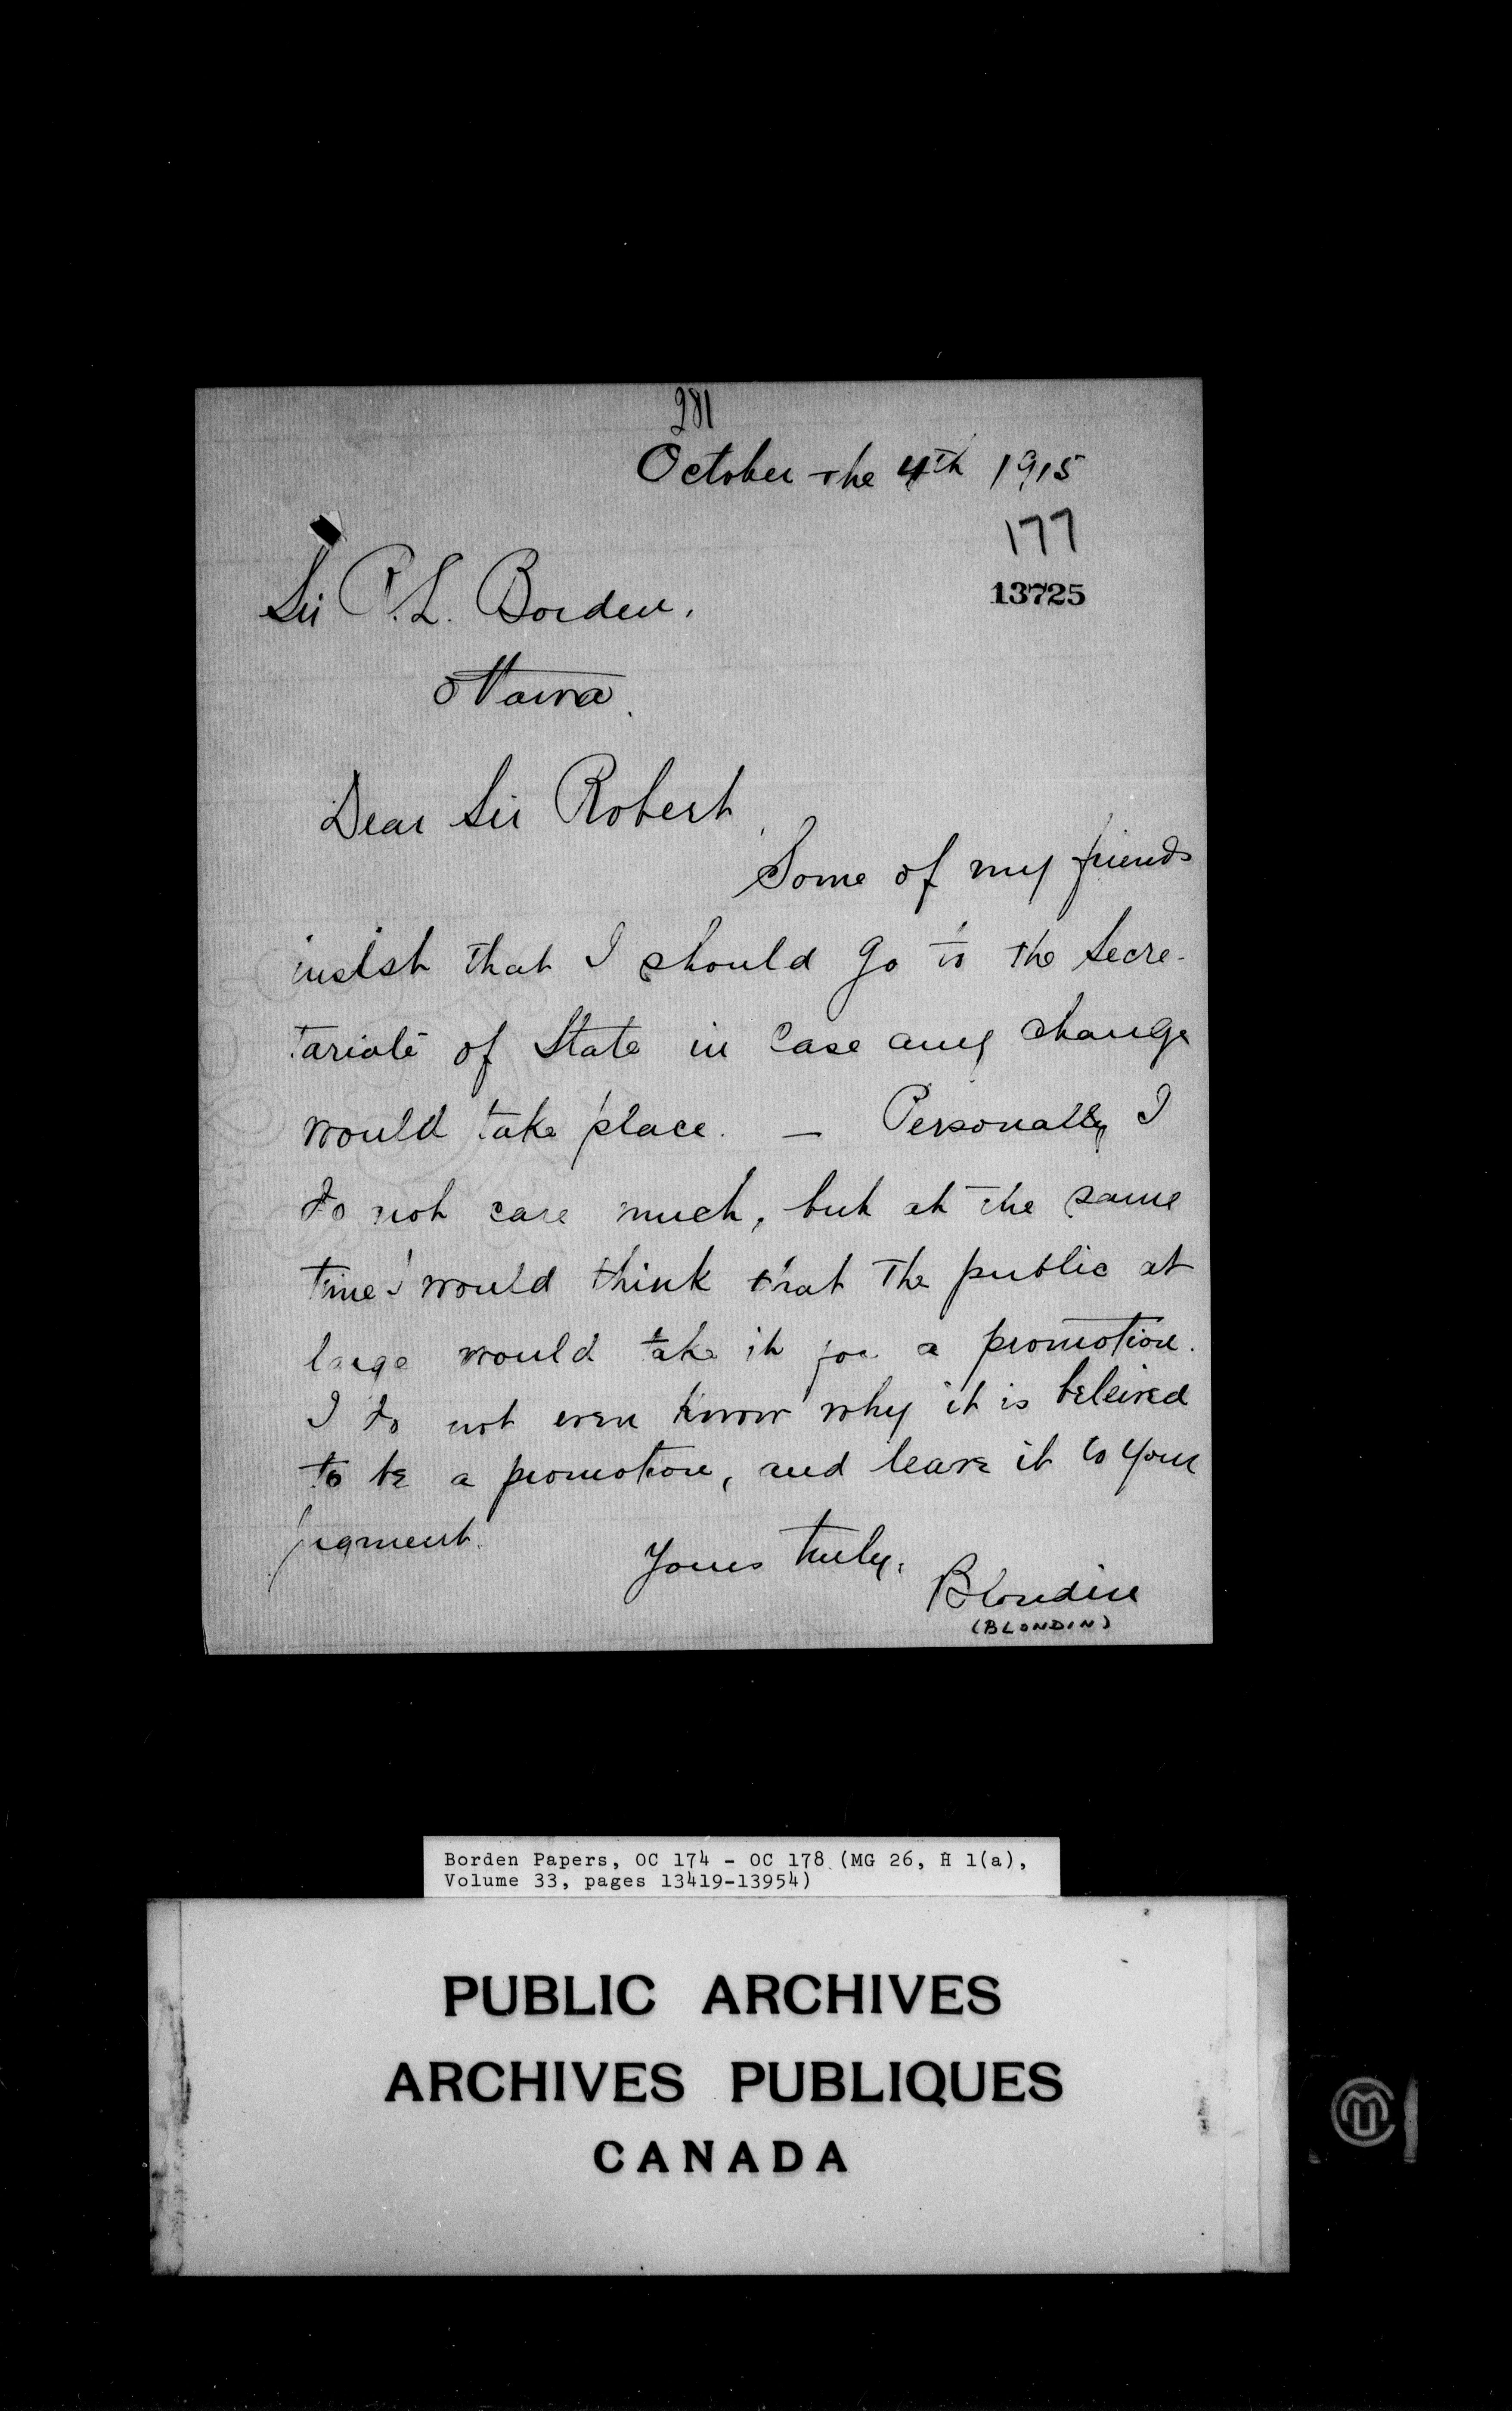 281
October the 4th 1915
177
13725
Sir R.L. Borden,
Ottawa.
Dear Sir Robert,
Some of my friends
insist that I should go to the Secre-
tariate of State in case any change
would take place. — Personally I
do not care much, but at the same
time I would think that the public at
large would take it for a promotion.
I do not even know why it is beleived
to be a promotion, and leave it to your
jugment.
Yours truly,
Blondin
(BLONDIN)
Borden Papers, OC 174 - OC 178 (MG 26, H 1(a),
Volume 33, pages 13419-13954)
PUBLIC ARCHIVES
ARCHIVES PUBLIQUES
CANADA